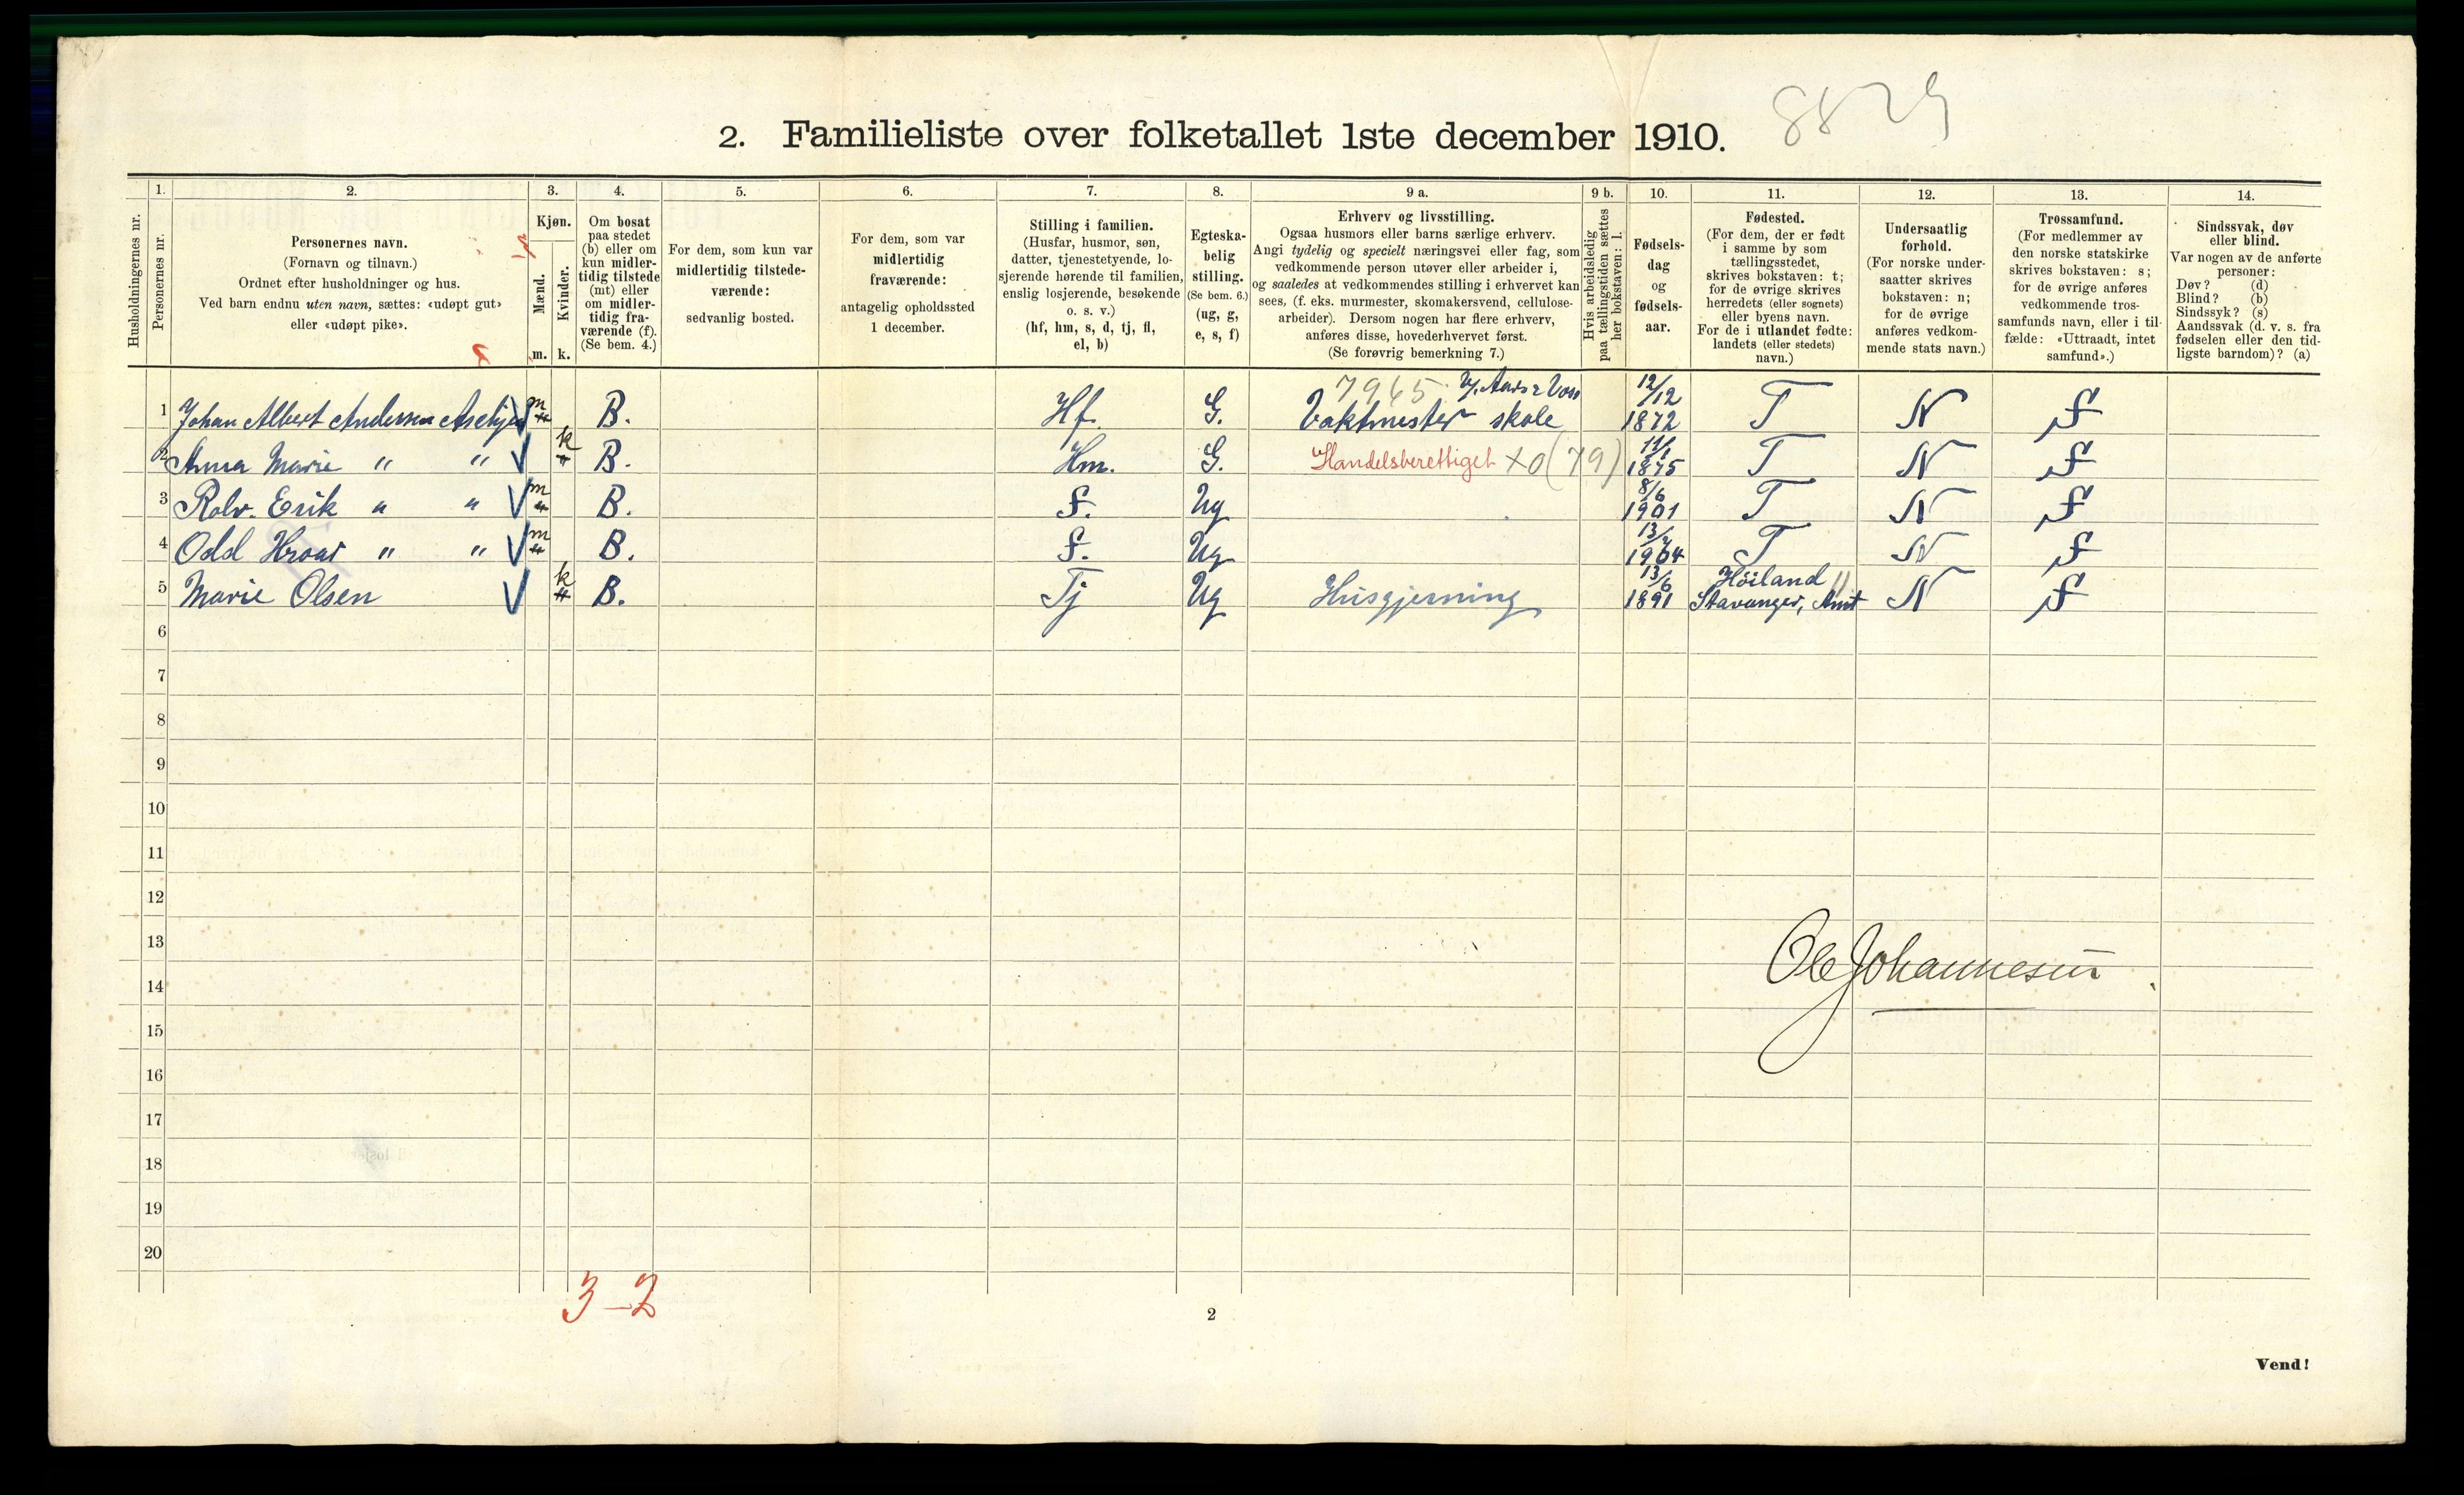 8829
2. Familieliste over folketallet 1ste december 1910.
Husholdningernes nr.
1.
Personernes nr.
2.
Personernes navn.
(Fornavn og tilnavn.)
Ordnet efter husholdninger og hus.
Ved barn endnu uten navn, sættes: «udøpt gut»
eller «udøpt pike».
3.
Kjøn.
Mænd.
Kvinder.
m. k.
4.
Om bosat
paa stedet
(b) eller om
kun midler-
tidig tilstede
(mt) eller
om midler-
tidig fra-
værende (f).
(Se bem. 4.)
5.
For dem, som kun var
midlertidig tilstede-
værende:
sedvanlig bosted.
6.
For dem, som var
midlertidig
fraværende:
antagelig opholdssted
1 december.
7.
Stilling i familien.
(Husfar, husmor, søn,
datter, tjenestetyende, lo-
sjerende hørende til familien,
enslig losjerende, besøkende
o. s. v.)
(hf, hm, s, d, tj, fl,
el, b)
8.
Egteska-
belig
stilling.
(Se bem. 6.)
(ug, g,
e, s, f)
9 a.
Erhverv og livsstilling.
Ogsaa husmors eller barns særlige erhverv.
Angi tydelig og specielt næringsvei eller fag, som
vedkommende person utøver eller arbeider i,
og saaledes at vedkommendes stilling i erhvervet kan
sees, (f. eks. murmester, skomakersvend, cellulose-
arbeider). Dersom nogen har flere erhverv,
anføres disse, hovederhvervet først.
(Se forøvrig bemerkning 7.)
9 b.
Hvis arbeidsledig
paa tællingstiden sættes
her bokstaven: l.
10.
Fødsels-
dag
og
fødsels-
aar.
11.
Fødested.
(For dem, der er født
i samme by som
tællingsstedet,
skrives bokstaven: t;
for de øvrige skrives
herredets (eller sognets)
eller byens navn.
For de i utlandet fødte:
landets (eller stedets)
navn.)
12.
Undersaatlig
forhold.
(For norske under-
saatter skrives
bokstaven: n;
for de øvrige
anføres vedkom-
mende stats navn.)
13.
Trossamfund.
(For medlemmer av
den norske statskirke
skrives bokstaven: s;
for de øvrige anføres
vedkommende tros-
samfunds navn, eller i til-
fælde: «Uttraadt, intet
samfund».)
14.
Sindssvak, døv
eller blind.
Var nogen av de anførte
personer:
Døv? (d)
Blind? (b)
Sindssyk? (s)
Aandssvak (d. v. s. fra
fødselen eller den tid-
ligste barndom)? (a)
7965 V. Aars & Voss
1 Johan Albert Andersen m B. Hf. G. Vaktmester skole 12/12 1872 T N S
2 Anna Marie " " k B. Hm. G. Handelsberettiget x0 (79) 11/1 1875 T N S
3 Rolv. Erik " " m B. S. Ug 8/6 1901 T N S
4 Odd Hroar " " m B. S. Ug 1904 T N S
5 Marie Olsen k B. Tj Ug Husgjerning 13/6 1891 Høiland Stavanger, Amt N S
6
7
8
9
10
11
12
13
Ole Johannesen
14
15
16
17
18
19
20
3-2
2
Vend!